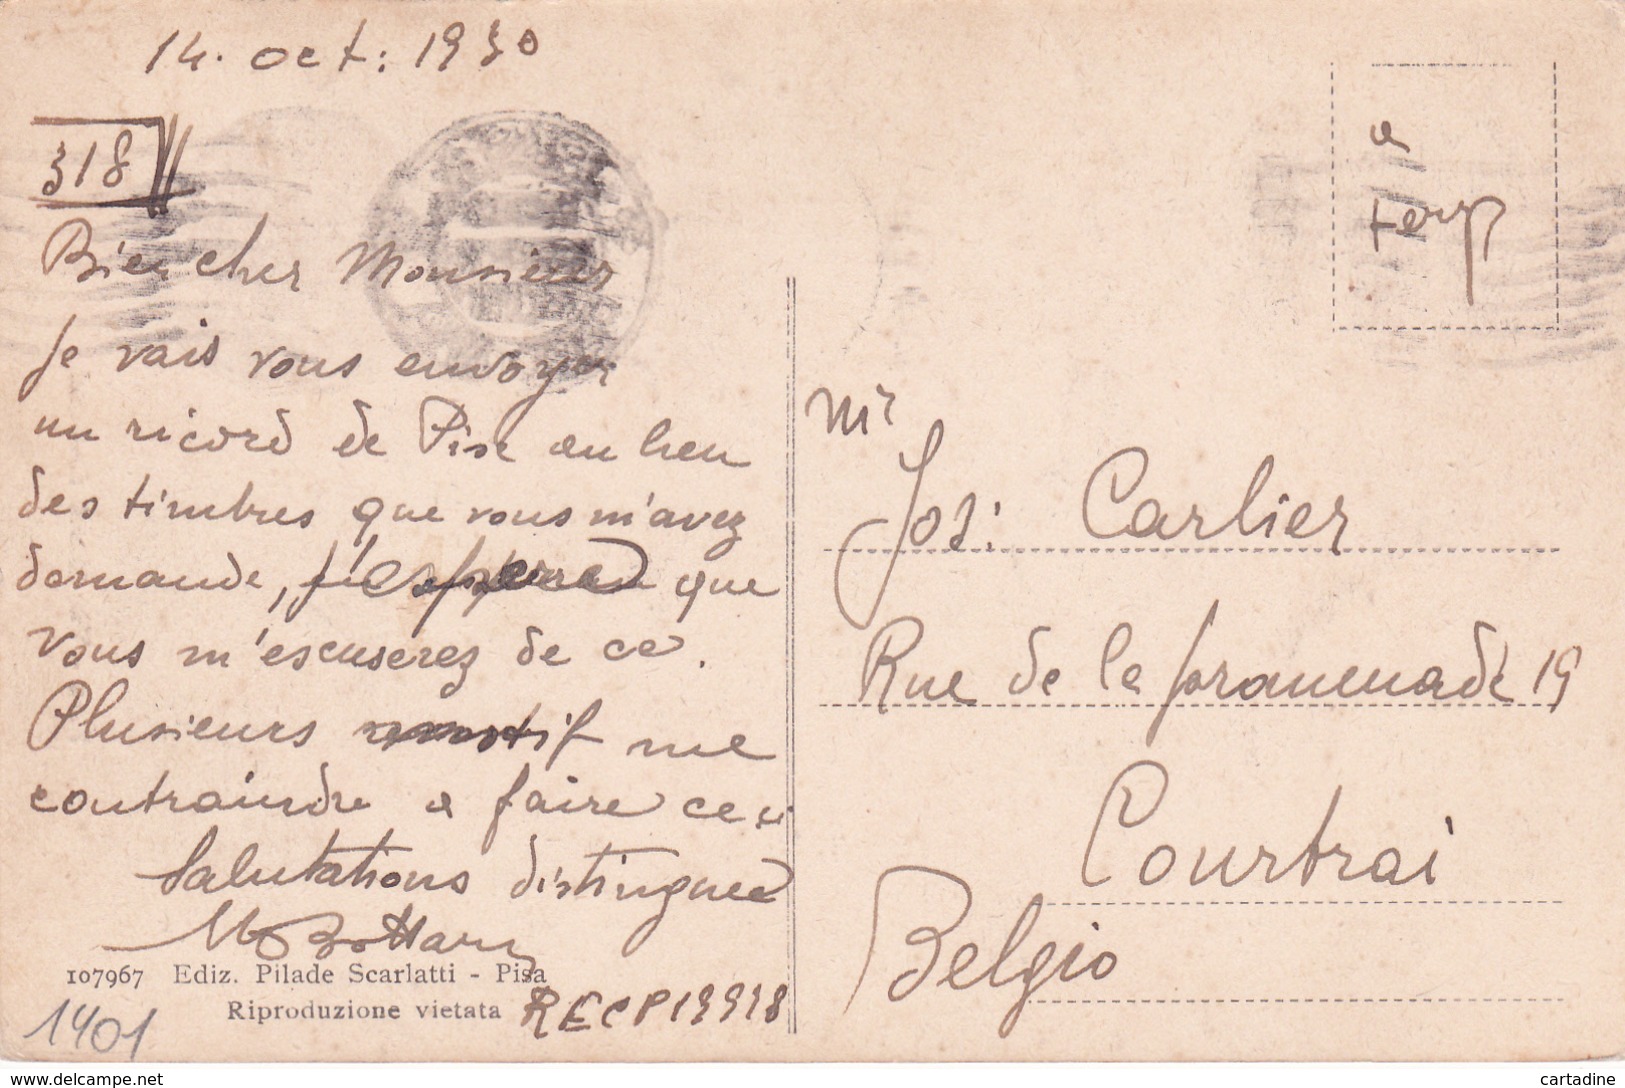 14. oct: 1930
318
Bien cher Monsieur
Je vais vous envoyer
un ricord de Pise au lieu
des timbres que vous m'avez
demande, j'espere que
vous m'escuserez de ce.
Plusieurs motif me
contraindre a faire ceci
Salutations distingueé
107967 Ediz. Pilade Scarlatti - Pisa
Riproduzione vietata
RECP13918
1401
Mr
Jos: Carlier
Rue de la promenade 19
Courtrai
Belgio
https://www.delcampe.net
cartadine